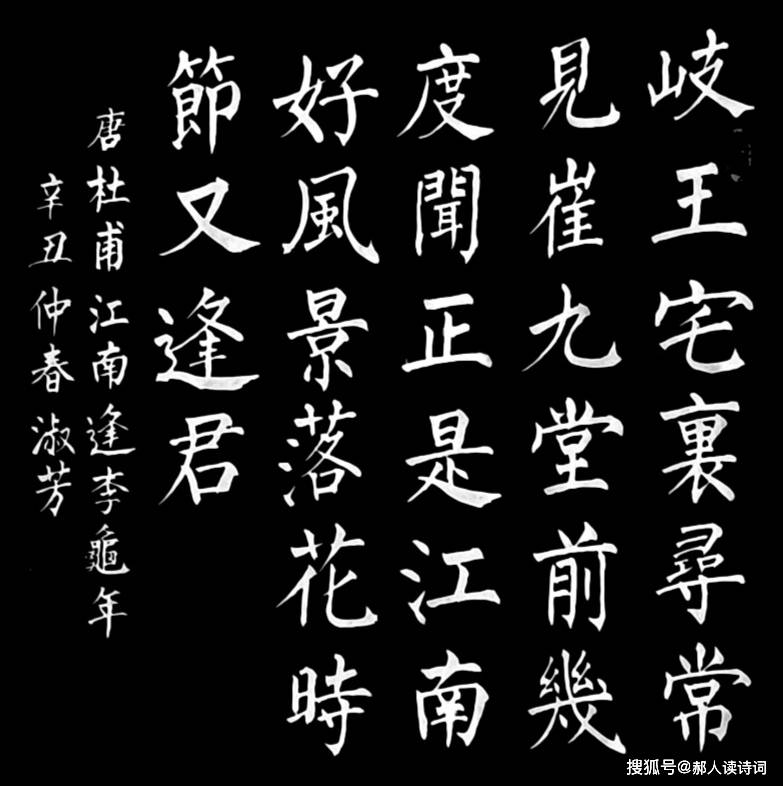 岐王宅裏尋常
見崔九堂前幾
度聞正是江南
好風景落花時
節又逢君
唐杜甫江南逢李龜年
辛丑仲春淑芳
搜狐号@郝人读诗词